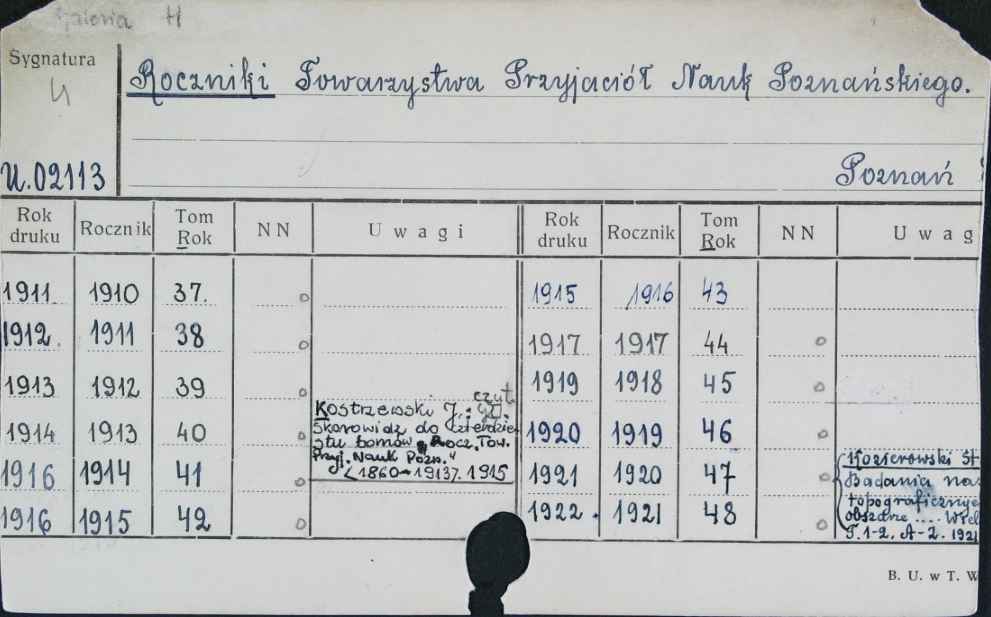 Galeria H
Sygnatura
4
U.02113
Roczniki Towarzystwa Przyjaciół Nauk Poznańskiego.
Poznań
Rok druku Rocznik Tom Rok NN Uwagi Rok druku Rocznik Tom Rok NN Uwag
1911. 1910 37. 1915 1916 43
1912. 1911 38 1917 1917 44
1913 1912 39 1919 1918 45
1914 1913 40 1920 1919 46
1916 1914 41 1921 1920 47
1916 1915 42 1922. 1921 48
czyt.
Kostrzewski J.:
Skorowidz do czterdzie
stu tomów Rocz. Tow.
Przyj. Nauk Pozn."
1860-1913. 1915
Kozierowski St
Badania na
topograficznye
obszarze .... Wiel
T. 1-2. A-Z. 1921
B. U. w T. W